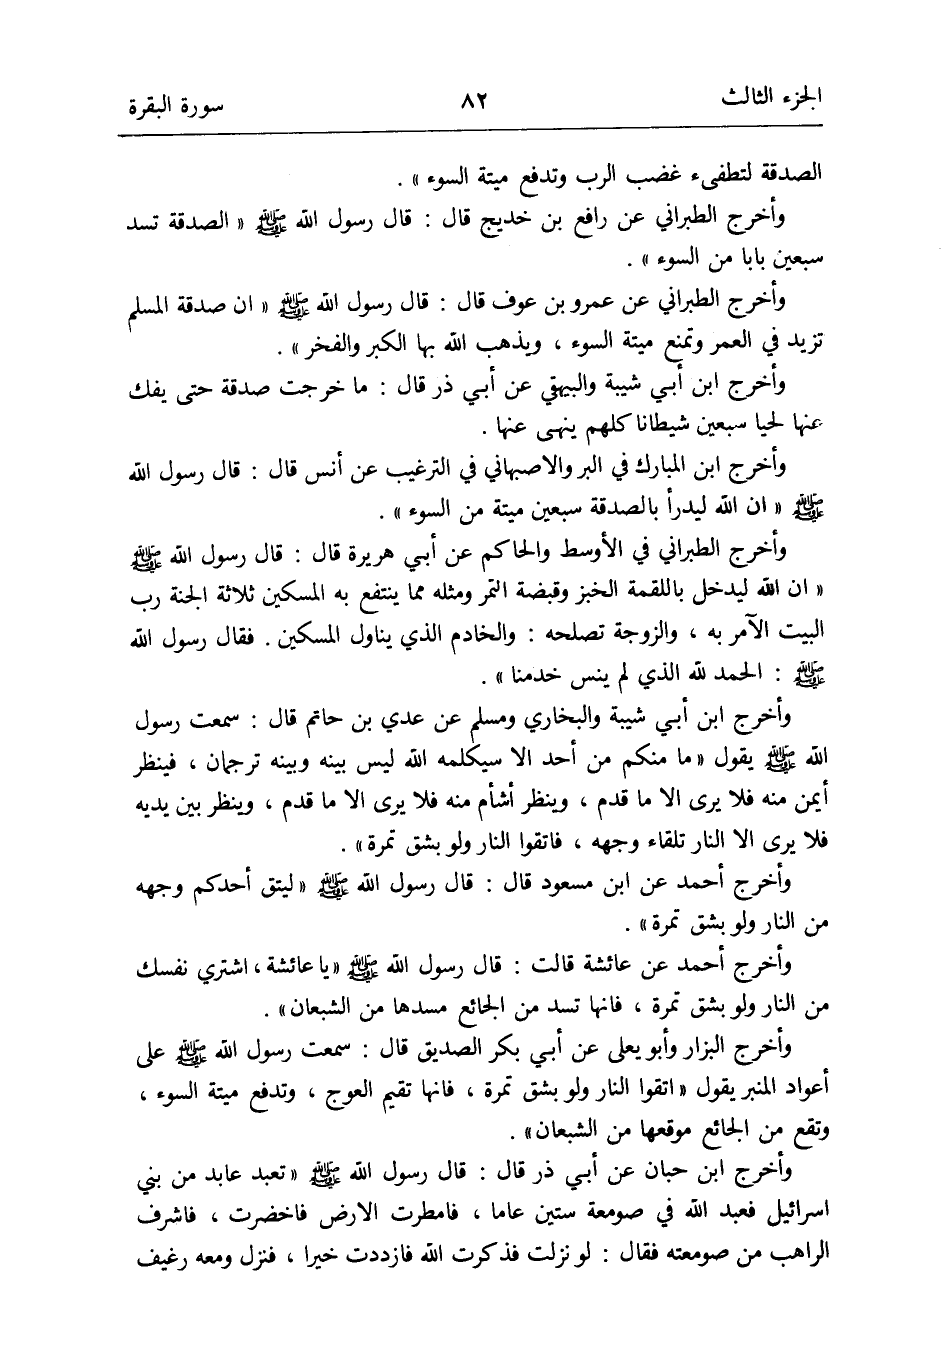 الجزء الثالث ٨٢ سورة البقرة
الصدقة لتطفىء غضب الرب وتدفع ميتة السوء » .
وأخرج الطبراني عن رافع بن خديج قال : قال رسول الله ﷺ « الصدقة تسد
سبعين بابا من السوء » .
وأخرج الطبراني عن عمرو بن عوف قال : قال رسول الله ﷺ « ان صدقة المسلم
تزيد في العمر وتمنع ميتة السوء ، ويذهب الله بها الكبر والفخر » .
وأخرج ابن أبي شيبة والبيهقي عن أبي ذر قال : ما خرجت صدقة حتى يفك
عنها لحيا سبعين شيطانا كلهم ينهى عنها .
وأخرج ابن المبارك في البر والاصبهاني في الترغيب عن أنس قال : قال رسول الله
ﷺ « ان الله ليدرأ بالصدقة سبعين ميتة من السوء » .
وأخرج الطبراني في الأوسط والحاكم عن أبي هريرة قال : قال رسول الله ﷺ
« ان الله ليدخل باللقمة الخبز وقبضة التمر ومثله مما ينتفع به المسكين ثلاثة الجنة رب
البيت الآمر به ، والزوجة تصلحه : والخادم الذي يناول المسكين . فقال رسول الله
ﷺ : الحمد لله الذي لم ينس خدمنا » .
وأخرج ابن أبي شيبة والبخاري ومسلم عن عدي بن حاتم قال : سمعت رسول
الله ﷺ يقول « ما منكم من أحد الا سيكلمه الله ليس بينه وبينه ترجمان ، فينظر
أيمن منه فلا يرى الا ما قدم ، وينظر أشأم منه فلا يرى الا ما قدم ، وينظر بين يديه
فلا يرى الا النار تلقاء وجهه ، فاتقوا النار ولو بشق تمرة » .
وأخرج أحمد عن ابن مسعود قال : قال رسول الله ﷺ « ليتق أحدكم وجهه
من النار ولو بشق تمرة » .
وأخرج أحمد عن عائشة قالت : قال رسول الله ﷺ « يا عائشة ، اشتري نفسك
من النار ولو بشق تمرة ، فانها تسد من الجائع مسدها من الشبعان » .
وأخرج البزار وأبو يعلى عن أبي بكر الصديق قال : سمعت رسول الله ﷺ على
أعواد المنبر يقول « اتقوا النار ولو بشق تمرة ، فانها تقيم العوج ، وتدفع ميتة السوء ،
وتقع من الجائع موقعها من الشبعان » .
وأخرج ابن حبان عن أبي ذر قال : قال رسول الله ﷺ « تعبد عابد من بني
اسرائيل فعبد الله في صومعة ستين عاما ، فامطرت الارض فاخضرت ، فاشرف
الراهب من صومعته فقال : لو نزلت فذكرت الله فازددت خيرا ، فنزل ومعه رغيف